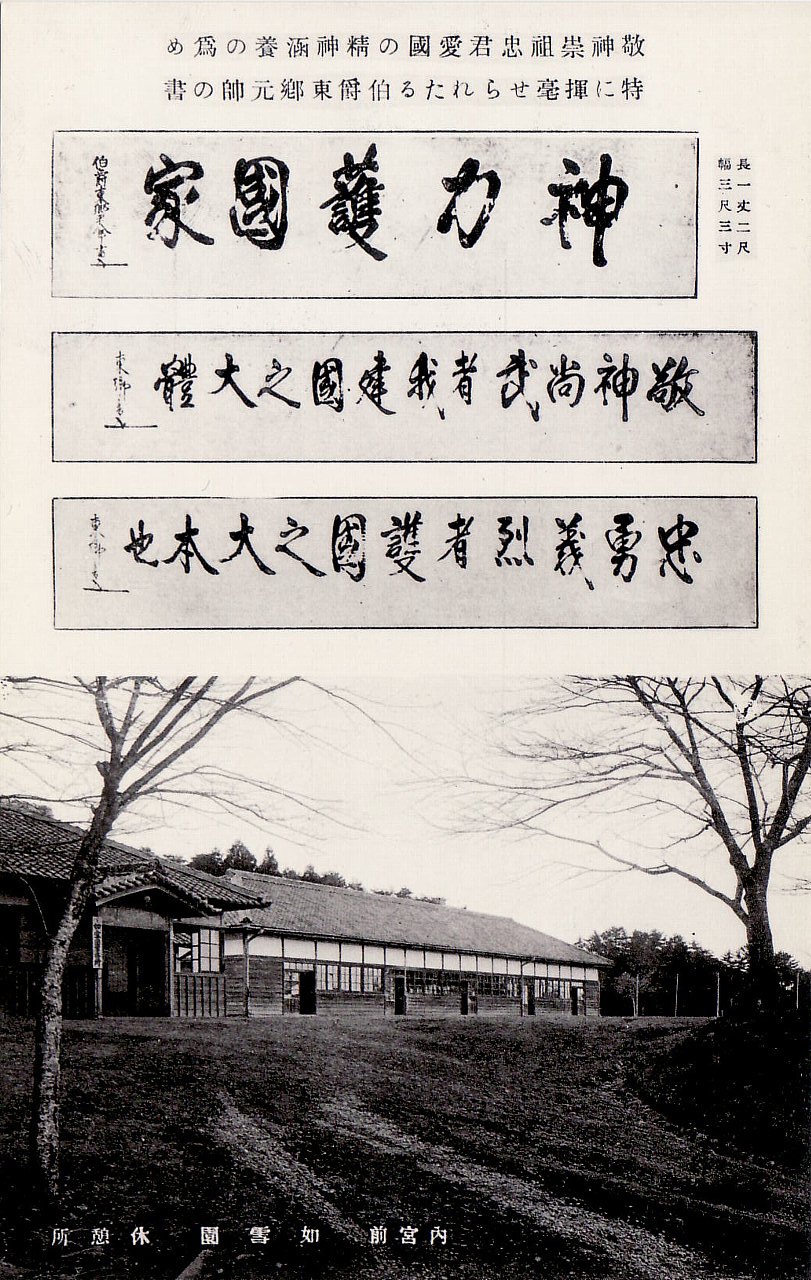 敬神崇祖忠君愛國の精神涵養の爲め
特に揮毫せられたる伯爵東鄕元帥の書
長一丈二尺
幅三尺三寸
神力護國家
敬神尚武者我建國之大體
東郷書
忠勇義烈者護國之大本也
東郷書
內宮前 如雪園 休憩所